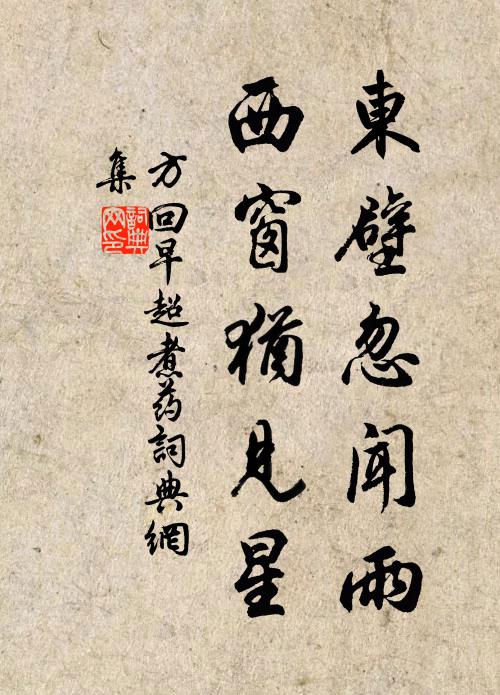 東壁忽聞雨
西窗猶見星
方回早超煮药詞典網
集
詞典
网印